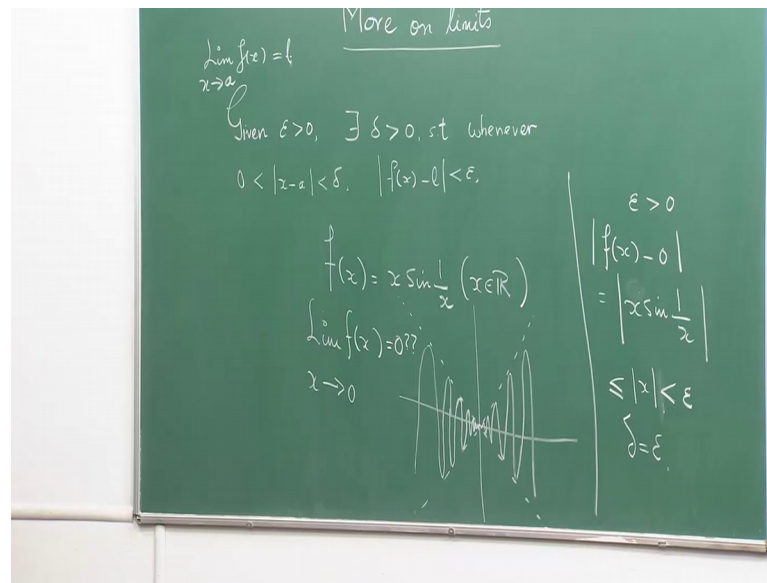 More on limits
Lim f(x) = l
x→a
Given ε>0, ∃ δ>0, s.t whenever
0 < |x-a| < δ, |f(x)-l| < ε.
f(x) = x Sin 1/x (x∈ℝ)
Lim f(x)=0??
x→0
ε > 0
|f(x)-0|
= |x sin 1/x|
≤ |x| < ε
δ=ε.